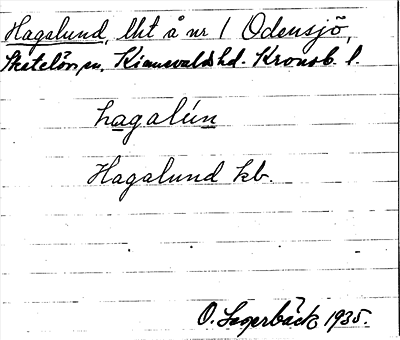 Hagalund, lht å nr 1 Odensjö,
Skatelövs sn. Kinnevalds hd. Kronob. l.
hagalún
Hagalund kb.
O. Lagerbäck 1935.